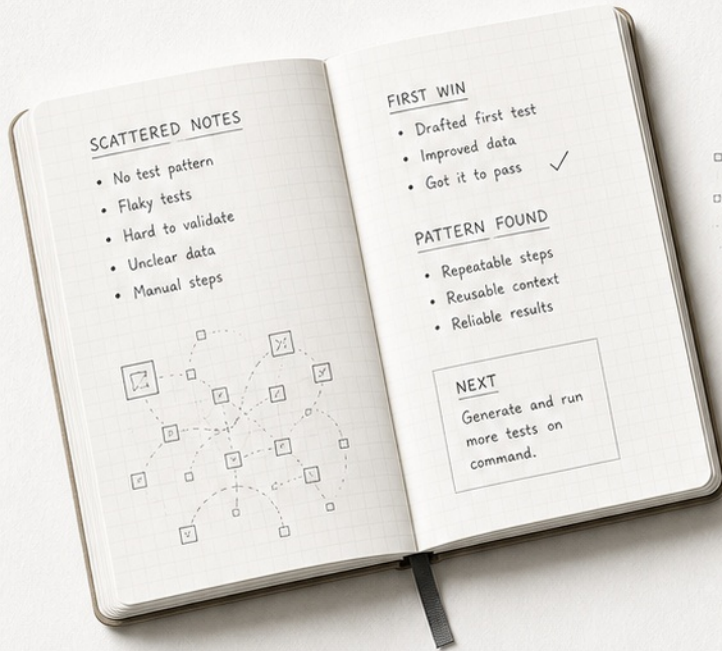 SCATTERED NOTES
• No test pattern
• Flaky tests
• Hard to validate
• Unclear data
• Manual steps
FIRST WIN
• Drafted first test
• Improved data
• Got it to pass ✓
PATTERN FOUND
• Repeatable steps
• Reusable context
• Reliable results
NEXT
Generate and run
more tests on
command.